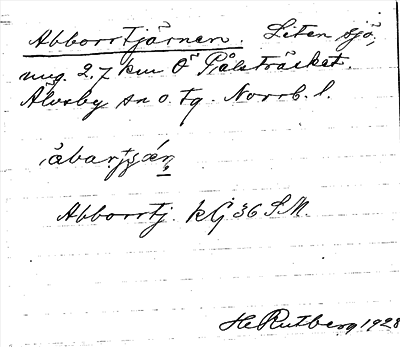 Abborrtjärnen. Liten sjö,
2.7 km Ö Pålsträsket.
Älvsby sn o. tg. Norrb. l.
Abborrtj. kG 36 S.M.
H. Rutberg 1928